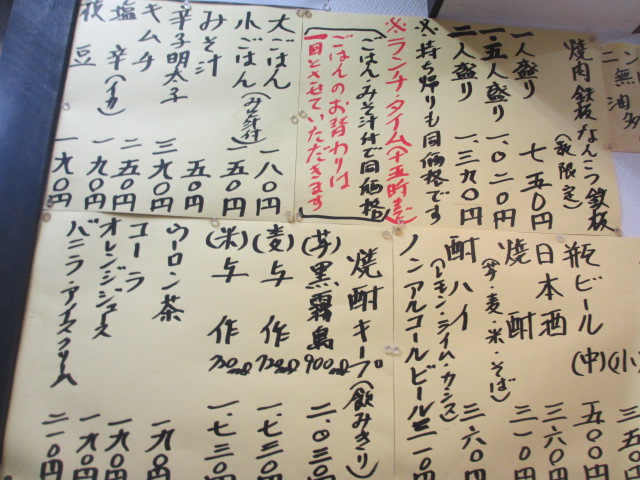 焼肉鉄板なんこつ鉄板(夜限定)
一人盛り 七五〇円
一・五人盛り 一、〇二〇円
二人盛り 一、三九〇円
※持ち帰りも同価格です
※ランチ・タイム(十五時まで)
ごはんみそ汁付で同価格
ごはんのお替わりは
一回とさせていただきます
大ごはん 一八〇円
小ごはん(みそ汁付) 一五〇円
みそ汁 五〇円
辛子明太子 三九〇円
キムチ 一五〇円
塩辛(イカ) 一九〇円
枝豆 一九〇円
(小) 三五
瓶ビール(中) 五〇〇円
日本酒 三六〇円
焼酎(芋・麦・米・そば) 三一〇円
酎ハイ(レモン・ライム・カシス) 三六〇円
ノンアルコールビール 二一〇円
焼酎キープ(飲みきり)
(芋)黒霧島 900ml 二、〇三〇円
(麦)与作 720ml 一、七三〇円
(米)与作 720ml 一、七三〇円
ウーロン茶 一九〇円
コーラ 一九〇円
オレンジジュース 一九〇円
バニラ・アイスクリーム 二一〇円